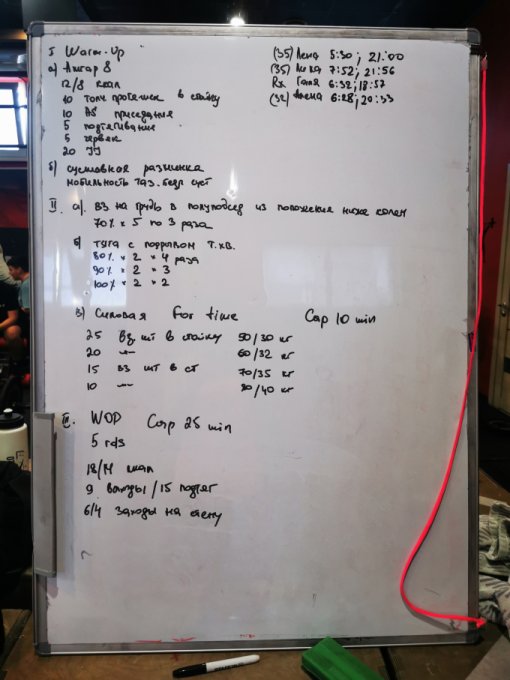 I Warm-Up
а) Амгар 8
12/8 ккал
10 толч протяжек в стойку
10 AS приседания
5 подтягивание
5 червяк
20 JJ
б) суставная разминка
мобильность таз.бедр суст
II. а). вз на грудь в полуподсед из положения ниже колен
70% × 5 по 3 раза
б) тяга с подрывом т.кв.
80% × 2 × 4 раза
90% × 2 × 3
100% × 2 × 2
в) Силовая for time Cap 10 min
25 вз шт в стойку 50/30 кг
20 —"— 60/32 кг
15 вз шт в ст 70/35 кг
10 —"— 80/40 кг
III. WOD Cap 25 min
5 rds
18/14 ккал
9 выходы /15 подтяг
6/4 заходы на стену
(35) Лена 5:30 ; 21:00
(35) 7:52; 21:56
Rx Галя 6:32; 18:57
(32) Алена 6:28; 20:33